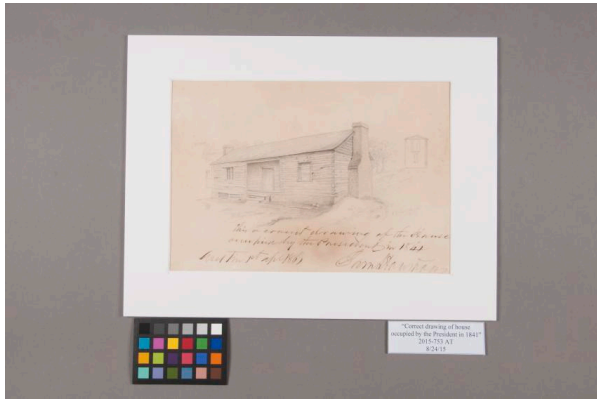 This is a correct drawing of the House
occupied by the President in 1841
Austin 1st Apl 1841
Sam Houston
"Correct drawing of house
occupied by the President in 1841"
2015-753 AT
8/24/15